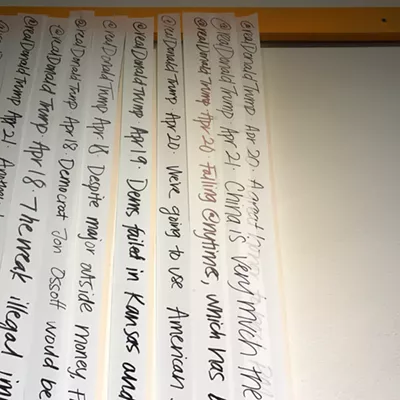 @realDonaldTrump Apr 21.
@realDonaldTrump Apr 18. The weak illegal
@realDonaldTrump Apr 18. Democrat Jon Ossoff would be
@realDonaldTrump Apr 18. Despite major outside money,
@realDonaldTrump Apr 19. Dems failed in Kansas and
@realDonaldTrump Apr 20. We're going to use American
@realDonaldTrump Apr 20. Failing @nytimes, which has
@realDonaldTrump Apr 21. China is very much the
@realDonaldTrump Apr 20. A great